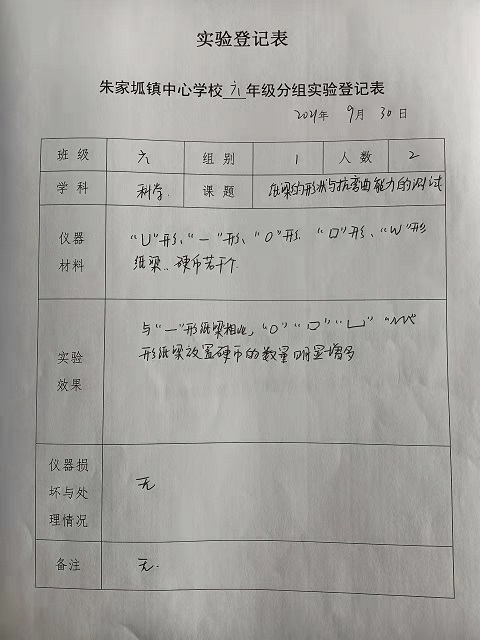 实验登记表
朱家坬镇中心学校六年级分组实验登记表
2021年 9月 30日
班级 六 组别 1 人数 2
学科 科学. 课题 纸梁的形状与抗弯曲能力的测试
仪器材料 “U”形、“一”形、“O”形 “口”形、“W”形
纸梁.. 硬币若干个
实验效果 与“一”形纸梁相比,“O”“口”“凵”“W”
形纸梁放置硬币的数量明显增多
仪器损坏与处理情况 无
备注 无.